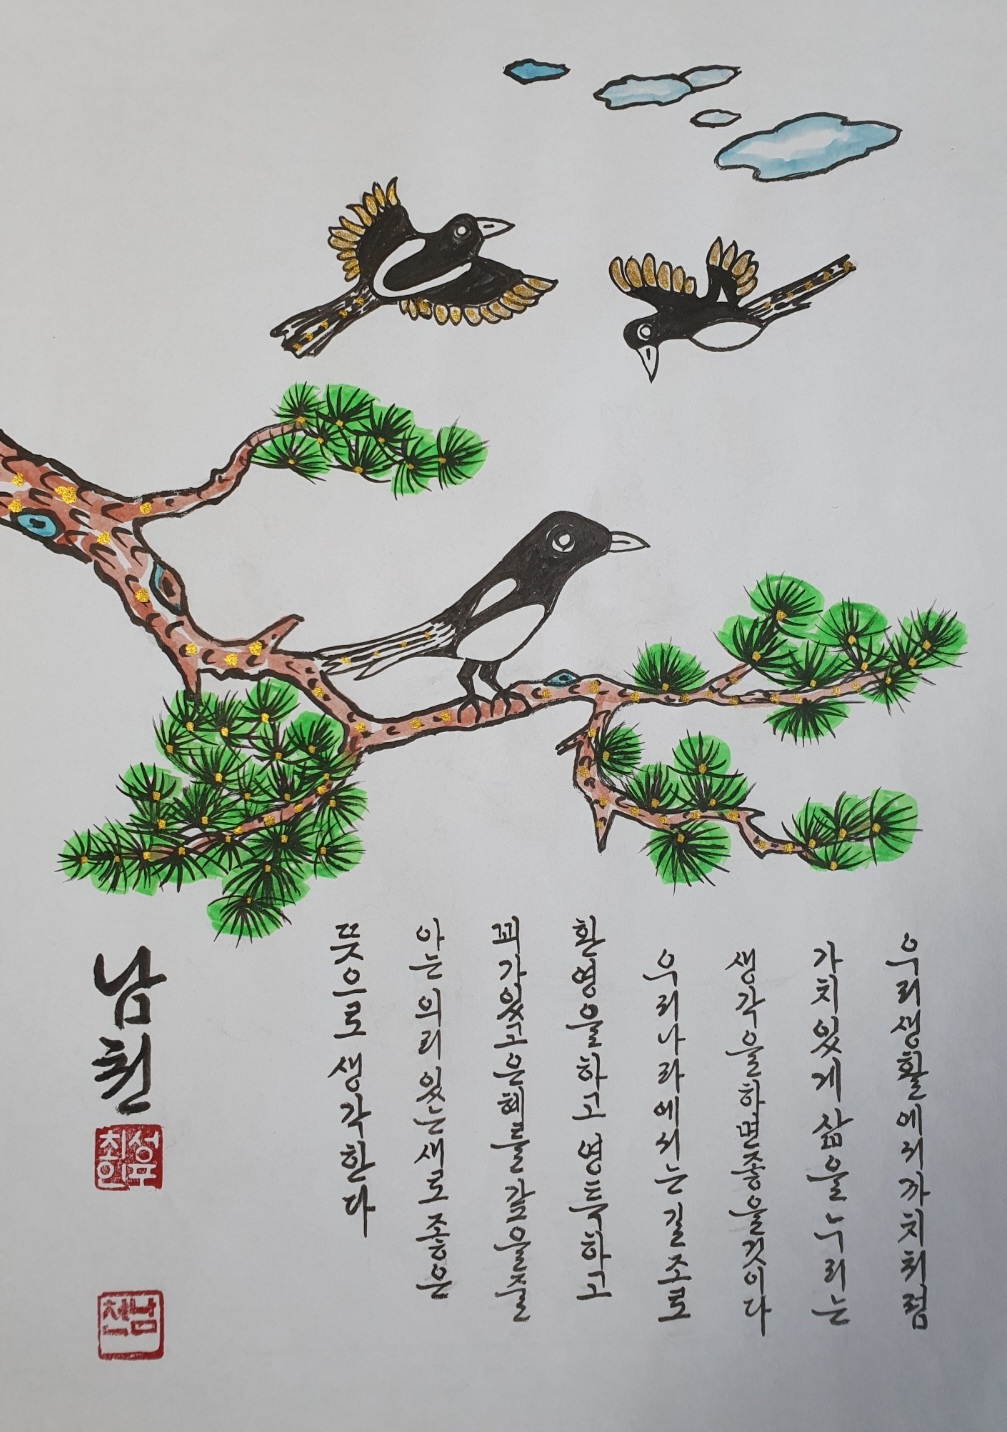 우리생활에서까치처럼
가치있게삶을누리는
생각을하면좋을것이다
우리나라에서는길조로
환영을하고영특하고
꾀가있고은혜를갚을줄
아는의리있는새로좋은
뜻으로 생각한다
남천
성표
최인
남천